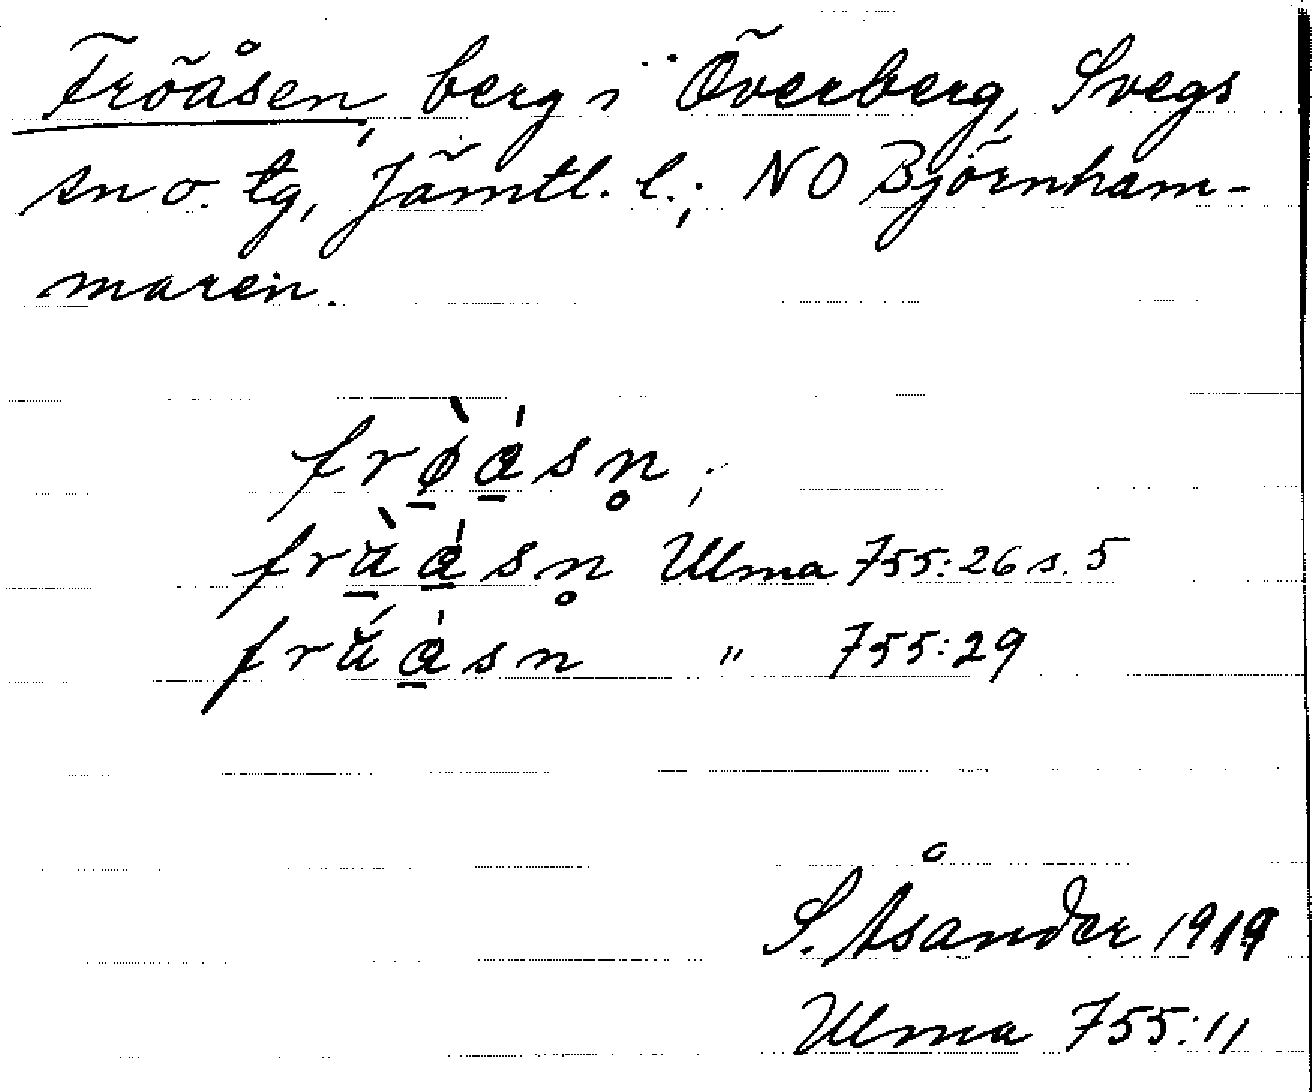 Fröåsen, berg i Överberg, Svegs
sn o. tg, Jämtl. l.; NO Björnham-
maren.
frø̱̀a̱̍sn̥;
frù̱a̱̍sn̥ Ulma 755:26 s. 5
frúa̱̍sn " 755:29
S. Åsander 1919
Ulma 755:11